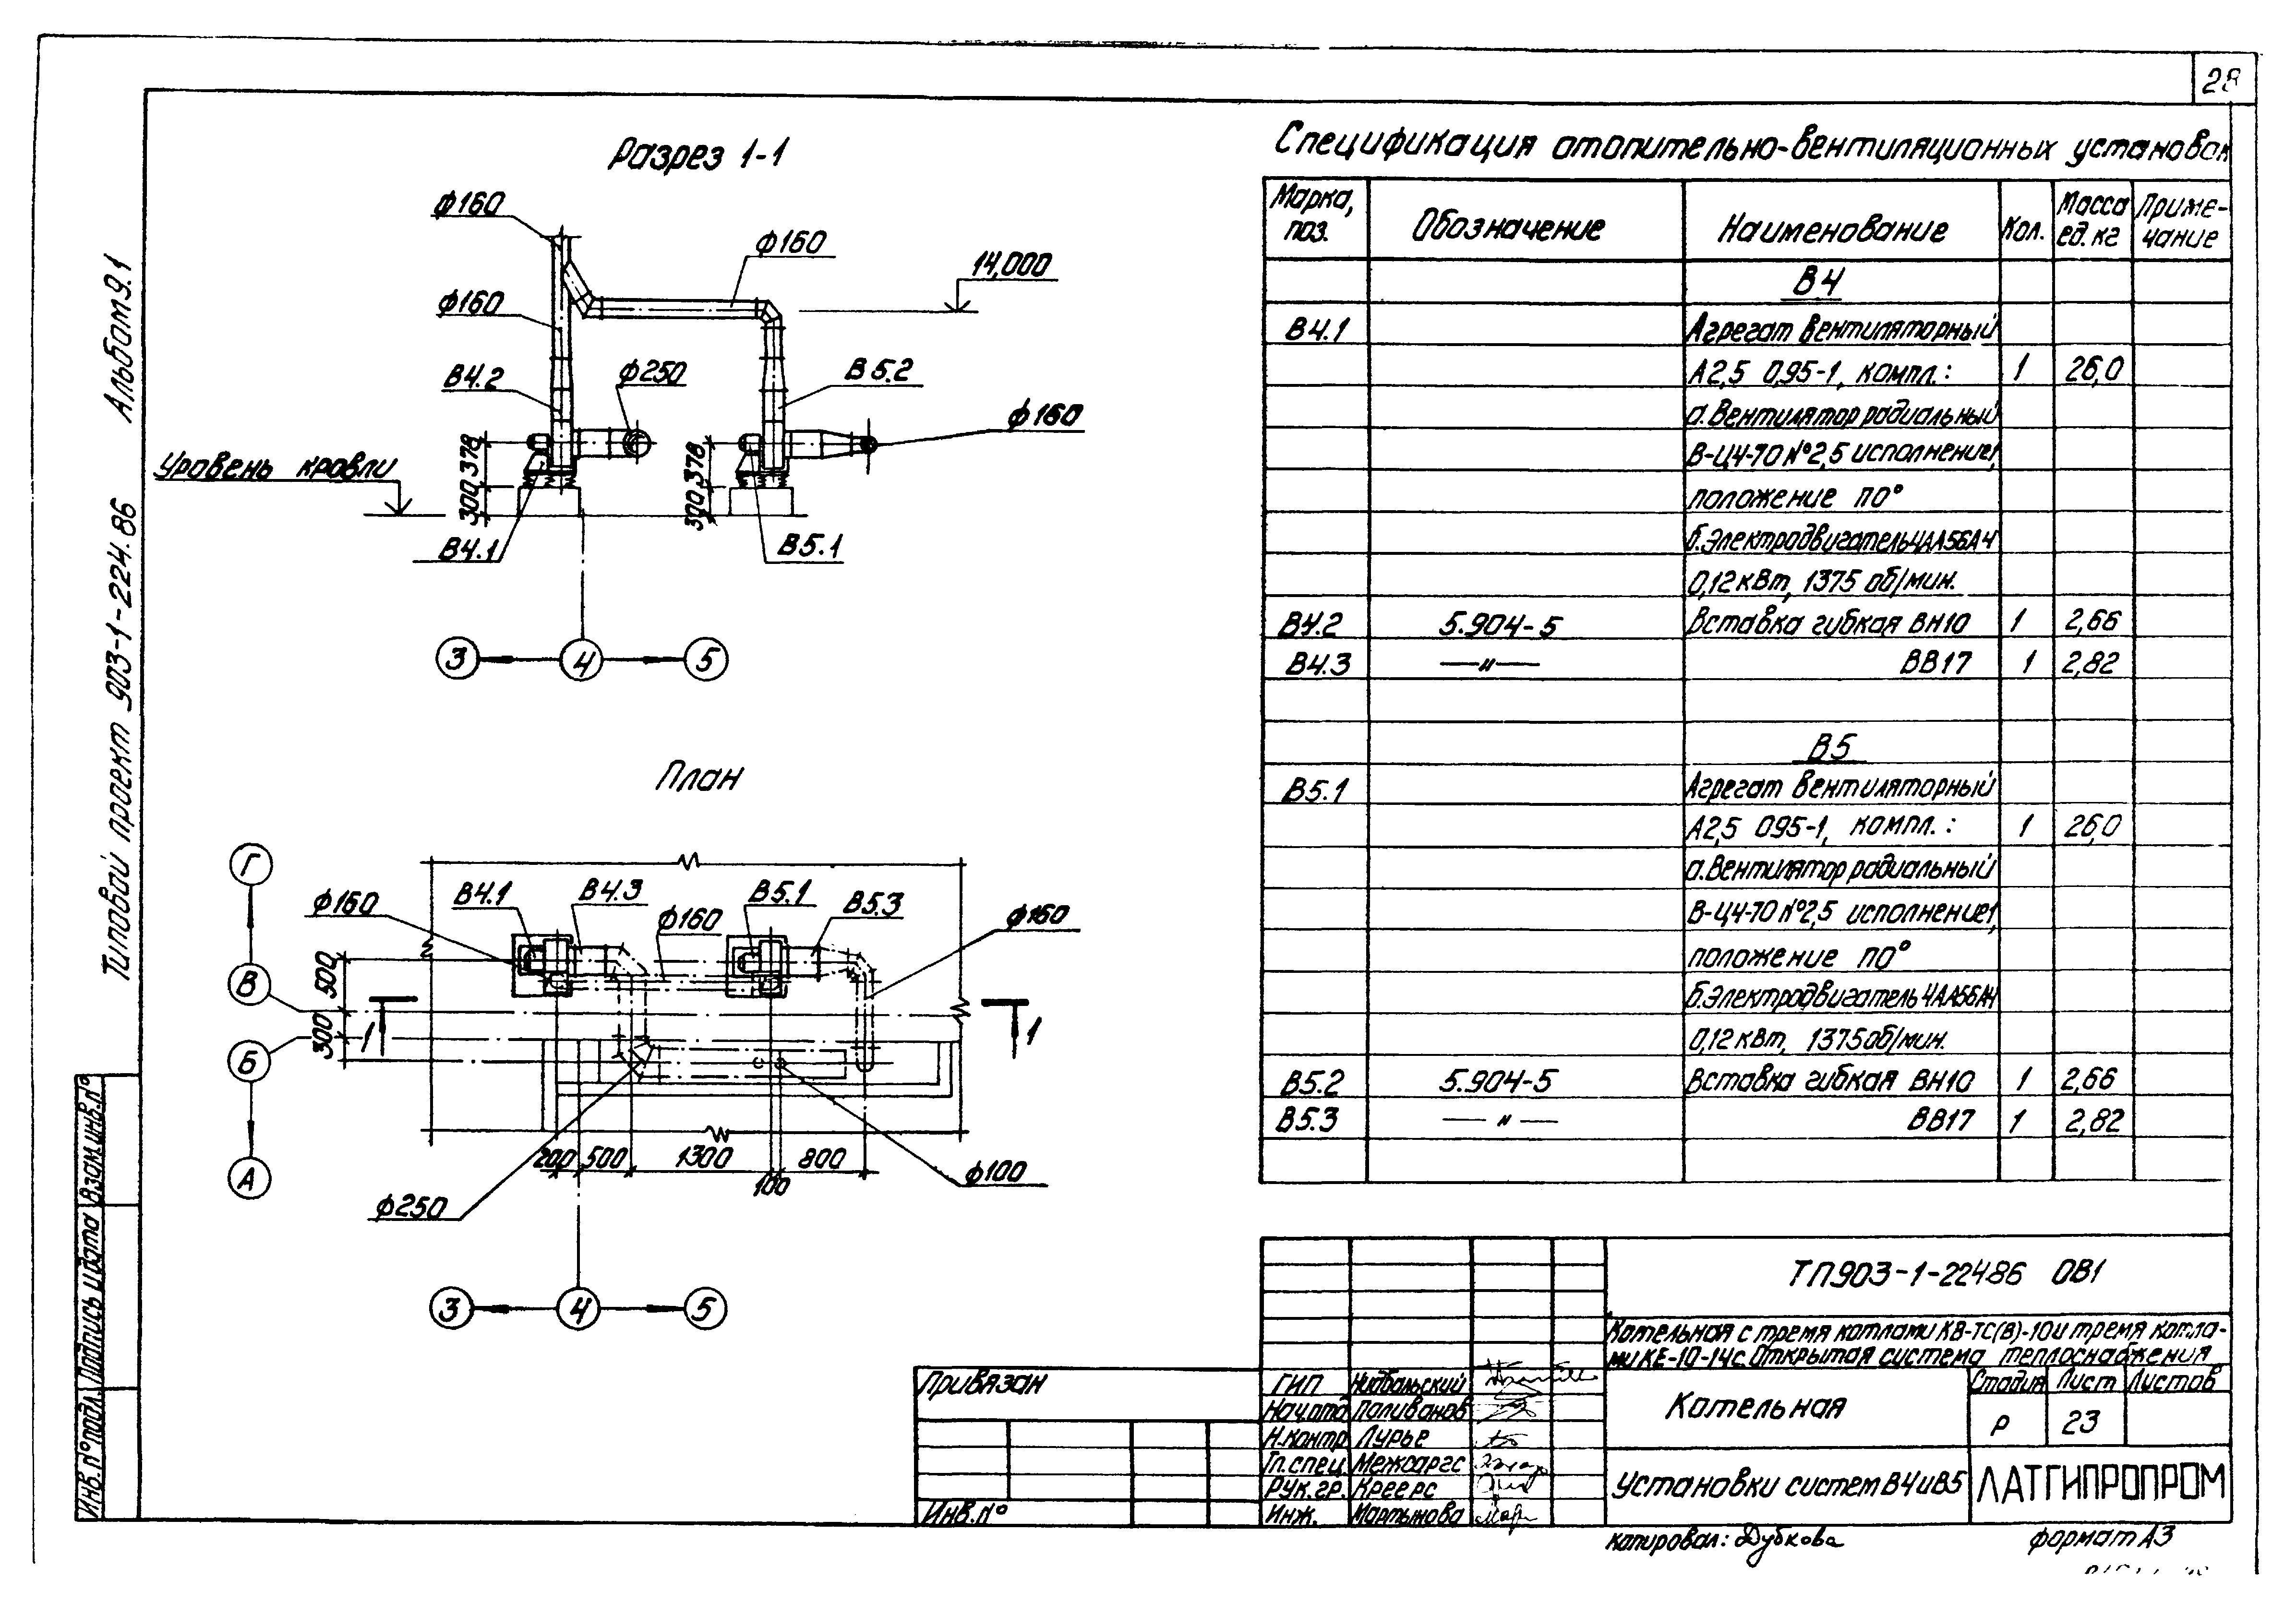 28
Альбом 9.1
Типовой проект 903-1-224.86
Разрез 1-1
ф160
ф160
14,000
ф160
В4.2
ф250
В5.2
ф160
378
300
378
300
Уровень кровли
В4.1
В5.1
3 4 5
План
Г
В
Б
А
ф160
В4.1
В4.3
ф160
В5.1
В5.3
ф160
500
300
1
1
200 500 1300 100 800
ф100
ф250
3 4 5
Спецификация отопительно-вентиляционных установок
Марка, поз. Обозначение Наименование Кол. Масса ед. кг Приме-чание
В4
В4.1 Агрегат вентиляторный
А2,5 0,95-1, компл.: 1 26,0
а. Вентилятор радиальный
В-Ц4-70 №2,5 исполнение 1,
положение П0°
б. Электродвигатель 4АА56А4
0,12 кВт, 1375 об/мин.
В4.2 5.904-5 Вставка гибкая ВН10 1 2,66
В4.3 —"— ВВ17 1 2,82
В5
В5.1 Агрегат вентиляторный
А2,5 095-1, компл.: 1 26,0
а. Вентилятор радиальный
В-Ц4-70 №2,5 исполнение 1,
положение П0°
б. Электродвигатель 4АА56А4
0,12 кВт, 1375 об/мин.
В5.2 5.904-5 Вставка гибкая ВН10 1 2,66
В5.3 —"— ВВ17 1 2,82
ТП903-1-224.86 ОВ1
Котельная с тремя котлами КВ-ТС(В)-10 и тремя котла-
ми КЕ-10-14с. Открытая система теплоснабжения
Привязан
Инв. №
ГИП Нидбальский
Нач.отд Поливанов
Н.контр Лурье
Гл.спец. Межсаргс
Рук.гр. Креерс
Инж. Мартынова
Котельная
Стадия Лист Листов
Р 23
Установки систем В4 и В5
ЛАТГИПРОПРОМ
копировал: Дубкова
формат А3
Взам.инв.№
Подпись и дата
Инв.№ подл.